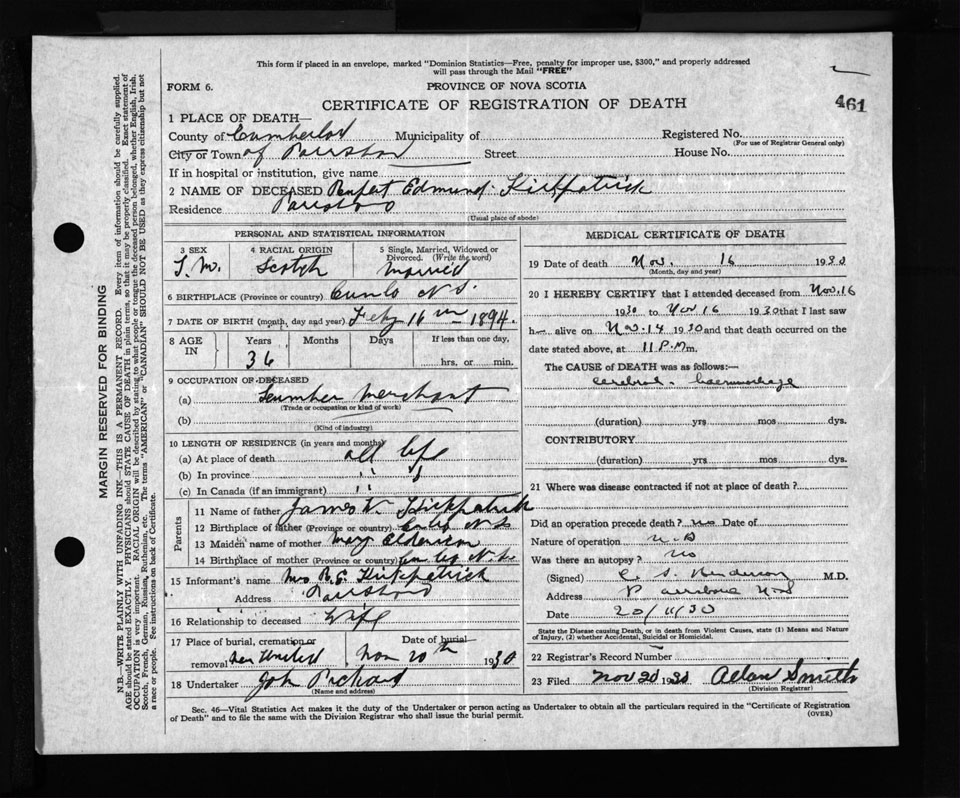 This form if placed in an envelope, marked "Dominion Statistics—Free, penalty for improper use, $300," and properly addressed
will pass through the Mail "FREE"
FORM 6.
PROVINCE OF NOVA SCOTIA
CERTIFICATE OF REGISTRATION OF DEATH
461
1 PLACE OF DEATH—
County of Municipality of Registered No.
(For use of Registrar General only)
City or Town of Street House No.
If in hospital or institution, give name
2 NAME OF DECEASED Edmund Kirkpatrick
Residence
(Usual place of abode)
PERSONAL AND STATISTICAL INFORMATION
3 SEX 4 RACIAL ORIGIN 5 Single, Married, Widowed or Divorced. (Write the word)
Scotch Married
6 BIRTHPLACE (Province or country) N S.
7 DATE OF BIRTH (month, day and year) 16 1894.
8 AGE IN Years Months Days If less than one day,
36 hrs. or min.
9 OCCUPATION OF DECEASED
(a) Lumber Merchant
(Trade or occupation or kind of work)
(b)
(Kind of industry)
10 LENGTH OF RESIDENCE (in years and months)
(a) At place of death all life
(b) In province " "
(c) In Canada (if an immigrant) " "
Parents
11 Name of father James Kirkpatrick
12 Birthplace of father (Province or country) N S
13 Maiden name of mother Mary
14 Birthplace of mother (Province or country) N.S.
15 Informant's name Mrs Kirkpatrick
Address
16 Relationship to deceased Wife
17 Place of burial, cremation or removal United
Date of burial Nov 20th 1930
18 Undertaker John
(Name and address)
MEDICAL CERTIFICATE OF DEATH
19 Date of death Nov. 16 1930
(Month, day and year)
20 I HEREBY CERTIFY that I attended deceased from Nov. 16
1930 to Nov 16 1930 that I last saw
h alive on Nov. 14 1930 and that death occurred on
date stated above, at 11 P.M m.
The CAUSE of DEATH was as follows:—
cerebral haemorrhage
(duration) yrs mos dys.
CONTRIBUTORY
(duration) yrs mos dys.
21 Where was disease contracted if not at place of death?
Did an operation precede death? no Date of
Nature of operation
Was there an autopsy? no
(Signed) Henderson M.D.
Address Parrsboro
Date 20/11/30
State the Disease causing Death, or in death from Violent Causes, state (1) Means and Nature
of Injury, (2) whether Accidental, Suicidal or Homicidal.
22 Registrar's Record Number
23 Filed Nov 20 1930 Allan Smith
(Division Registrar)
Sec. 46—Vital Statistics Act makes it the duty of the Undertaker or person acting as Undertaker to obtain all the particulars required in the "Certificate of Registration
of Death" and to file the same with the Division Registrar who shall issue the burial permit.
(OVER)
MARGIN RESERVED FOR BINDING
N.B.—WRITE PLAINLY WITH UNFADING INK—THIS IS A PERMANENT RECORD. Every item of information should be carefully supplied.
AGE should be stated EXACTLY. PHYSICIANS should STATE CAUSE OF DEATH in plain terms, so that it may be properly classified. Exact statement of
OCCUPATION is very important. RACIAL ORIGIN will be described by stating to what people or tongue the deceased person belonged, whether English, Irish,
Scotch, French, German, Russian, Ruthenian, etc. The terms "AMERICAN" or "CANADIAN" SHOULD NOT BE USED as they express citizenship but not
a race or people. See instructions on back of Certificate.